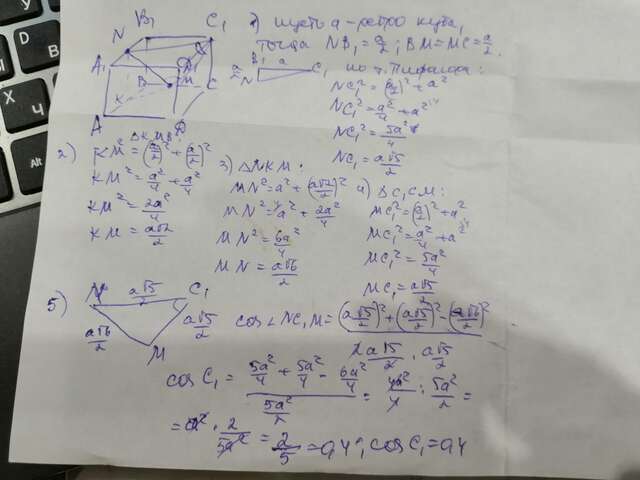 B₁ C₁
N
A₁ D₁
B M
K C
A D
1) пусть a - ребро куба,
тогда NB₁ = a/2; BM = MC = a/2.
B₁ a C₁
a/2 N
по т. Пифагора:
NC₁² = (a/2)² + a²
NC₁² = a²/4 + a²
NC₁² = 5a²/4
NC₁ = a√5/2
2) ΔKMB:
KM² = (a/2)² + (a/2)²
KM² = a²/4 + a²/4
KM² = 2a²/4
KM = a√2/2
3) ΔNKM:
MN² = a² + (a√2/2)²
MN² = a² + 2a²/4
MN² = 6a²/4
MN = a√6/2
4) ΔC₁CM:
MC₁² = (a/2)² + a²
MC₁² = a²/4 + a²
MC₁² = 5a²/4
MC₁ = a√5/2
5) N a√5/2 C₁
a√6/2 a√5/2
M
cos∠NC₁M = ((a√5/2)² + (a√5/2)² - (a√6/2)²) / (2 a√5/2 · a√5/2)
cos C₁ = (5a²/4 + 5a²/4 - 6a²/4) / (5a²/2) = 4a²/4 : 5a²/2 =
= a² · 2/5a² = 2/5 = 0,4; cos C₁ = 0,4